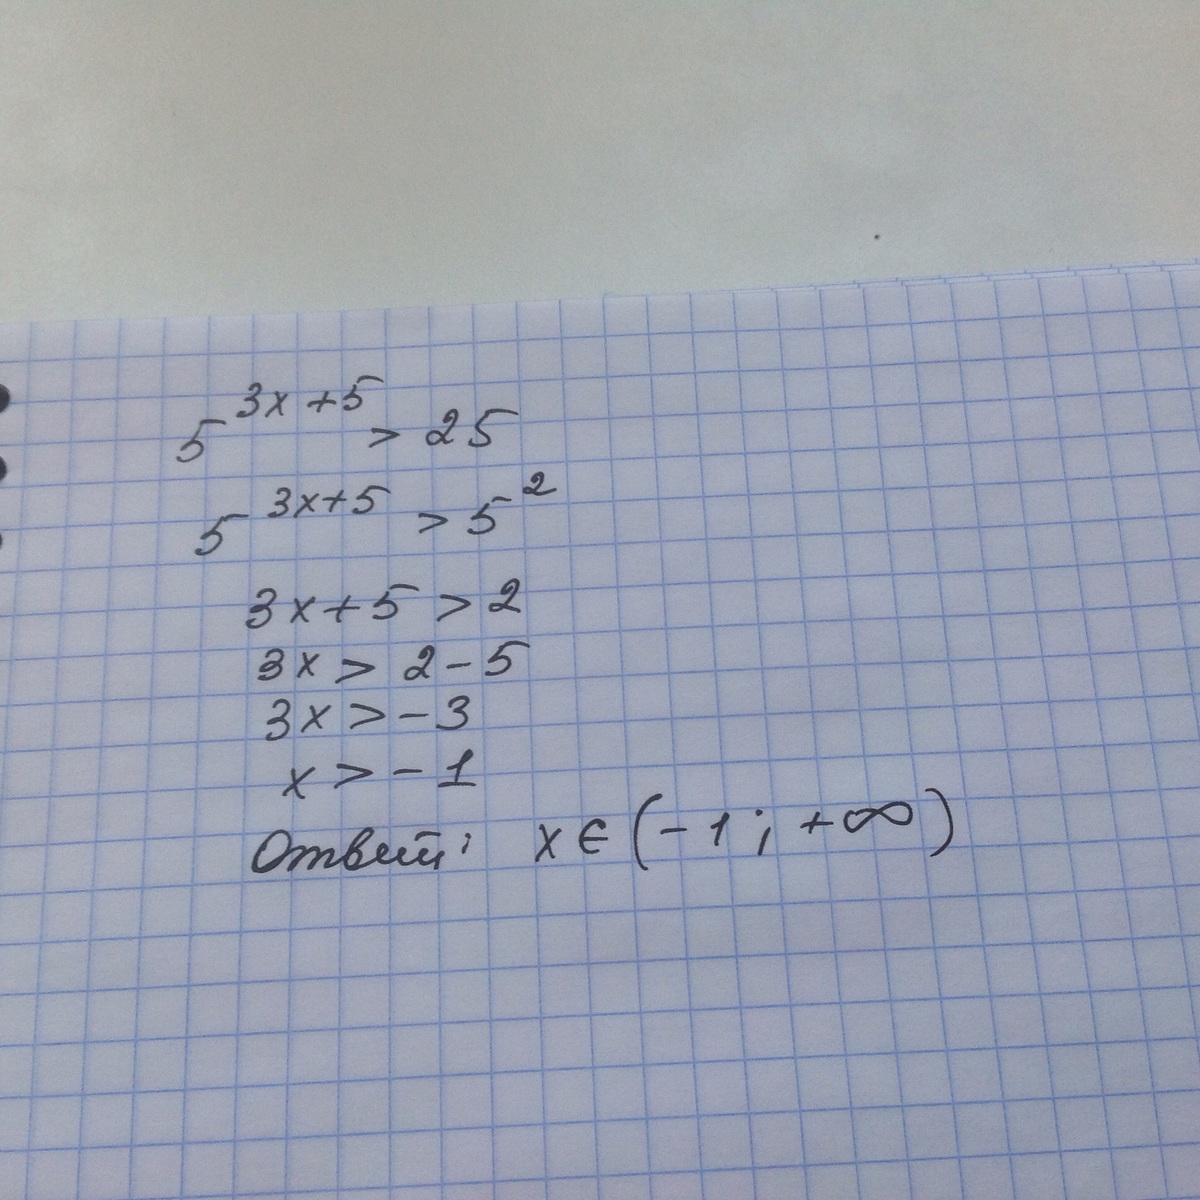 5^{3x+5} > 25
5^{3x+5} > 5^2
3x+5 > 2
3x > 2-5
3x > -3
x > -1
Ответ: x ∈ (-1; +∞)